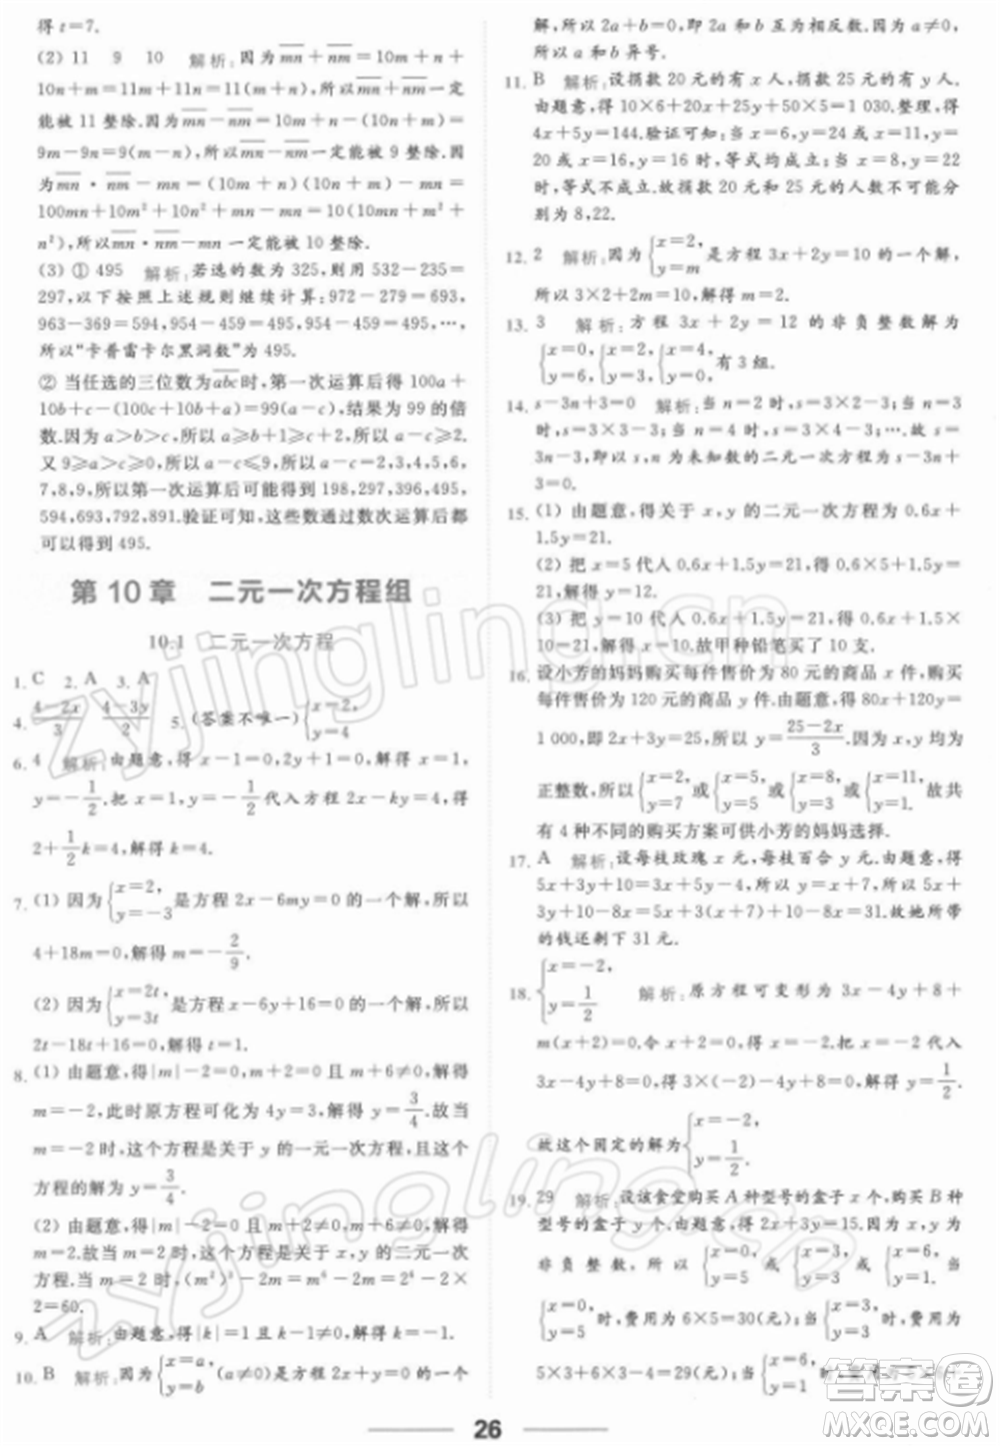 得 t=7.
(2) 11 9 10 解析:因为 mn+nm=10m+n+
10n+m=11m+11n=11(m+n),所以 mn+nm 一定
能被 11 整除.因为 mn-nm=10m+n-(10n+m)=
9m-9n=9(m-n),所以 mn-nm 一定能被 9 整除.因
为 mn·nm-mn=(10m+n)(10n+m)-(10m+n)=
100mn+10m²+10n²+mn-10m-n=10(10mn+m²+
n²-m)+mn-n,所以
(3) ① 495 解析:若选的数为 325,则 532-235=
297,以下按照上述规则继续计算:972-279=693,
963-369=594,954-459=495,954-459=495,…,
所以“卡普雷卡尔黑洞数”为 495.
② 当任选的三位数为 abc 时,第一次运算后得 100a+
10b+c-(100c+10b+a)=99(a-c),结果为 99 的倍
数.因为 a>b>c,所以 a≥b+1≥c+2,所以 a-c≥2.
又 9≥a>b>c≥0,所以 a-c≤9,所以 a-c=2,3,4,5,6,
7,8,9,所以第一次运算后可能得到 198,297,396,495,
594,693,792,891.验证可知,这些数通过数次运算后都
可以得到 495.
第 10 章 二元一次方程组
10.1 二元一次方程
1. C 2. A 3. A
4. (4-2x)/3 (4-3y)/2 5. (答案不唯一){x=2, y=4
6. 4 解析:由题意,得 x-1=0,2y+1=0,解得 x=1,
y=-1/2.把 x=1,y=-1/2代入方程 2x-ky=4,得
2+1/2k=4,解得 k=4.
7. (1) 因为{x=2, y=-3 是方程 2x-6my=0 的一个解,所以
4+18m=0,解得 m=-2/9.
(2) 因为{x=2t, y=3t 是方程 x-6y+16=0 的一个解,所以
2t-18t+16=0,解得 t=1.
8. (1) 由题意,得|m|-2=0,且 m-2≠0,解得
m=-2,此时原方程可化为 4y=3,解得 y=3/4.故当
m=-2 时,这个方程是关于 y 的一元一次方程,且这个
方程的解为 y=3/4.
(2) 由题意,得|m|-2≠0,m-2=0,m+2≠0,解得
m=2.故当 m=2 时,这个方程是关于 x,y 的二元一次
方程.当 m=2 时,(m²)³-2m=m⁶-2m=2⁶-2×
2=60.
9. A 解析:由题意,得|k|=1 且 k-1≠0,解得 k=-1.
10. B 解析:因为{x=a, y=b (a≠0)是方程 2x+y=0 的一个
解,所以 2a+b=0,即 b=-2a.因为 a≠0,
所以 a 和 b 异号.
11. B 解析:设捐款 20 元的有 x 人,捐款 25 元的有 y 人.
由题意,得 10×6+20x+25y+50×5=1 030.整理,得
4x+5y=144.验证可知:当 x=11,y=20 时,等式成立;
当 x=16,y=16 时,等式均成立;当 x=8,y=22
时,等式不成立.故捐款 20 元和 25 元的人数不可能分
别为 8,22.
12. 2 解析:因为{x=2, y=m 是方程 3x+2y=10 的一个解,
所以 3×2+2m=10,解得 m=2.
13. 3 解析:方程 3x+2y=12 的非负整数解为
{x=0, y=6,{x=2, y=3,{x=4, y=0,有 3 组.
14. s-3n+3=0 解析:当 n=2 时,s=3=3×2-3;当 n=
3 时,s=6=3×3-3;当 n=4 时,s=9=3×4-3;…,由
此类推,所以以 s,n 为未知数的二元一次方程为 s-3n+
3=0.
15. (1) 由题意,得关于 x,y 的二元一次方程为 0.6x+
1.5y=21.
(2) 把 x=5 代入 0.6x+1.5y=21,得 0.6×5+1.5y=21,
解得 y=12.
(3) 把 y=10 代入 0.6x+1.5y=21,得 0.6x+1.5×
10=21,解得 x=10.故甲种铅笔买了 10 支.
16. 设小芳的妈妈购买每件售价为 80 元的商品 x 件,购买
每件售价为 120 元的商品 y 件.由题意,得 80x+120y=
1 000,即 2x+3y=25,所以 y=(25-2x)/3.因为 x,y 均为
正整数,所以{x=2, y=7或{x=5, y=5或{x=8, y=3或{x=11, y=1.故共
有 4 种不同的购买方案可供小芳的妈妈选择.
17. A 解析:设每枝玫瑰 x 元,每枝百合 y 元.由题意,得
5x+3y+10=3x+5y-4,所以 y=x+7,所以 5x+
3y+10=5x+3(x+7)+10=8x+31.故她所带
的钱还剩下 31 元.
18. {x=-2, y=1/2 解析:原方程可变形为 3x-4y+8+
m(x+2)=0,所以 x=-2.所以 3×(-2)-4y+8=0.解得 y=1/2.
故这个固定的解为{x=-2, y=1/2.
19. 29 解析:设该食堂购买 A 种型号的盒子 x 个,购买 B 种
型号的盒子 y 个.由题意,得 2x+3y=15.因为 x,y 均为
非负整数,所以{x=0, y=5或{x=3, y=3或{x=6, y=1.当
{x=0, y=5时,费用为 6×5=30(元);当{x=3, y=3时,费用为
5×3+6×3-4=29(元),当{x=6, y=1时,费用为
26
zyjingling.cn
zyjingling.cn
答案圈
MXQE.COM